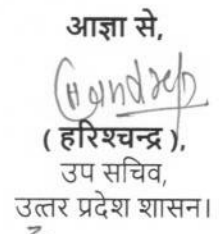 आज्ञा से,
( हरिश्चन्द्र ),
उप सचिव,
उत्तर प्रदेश शासन।